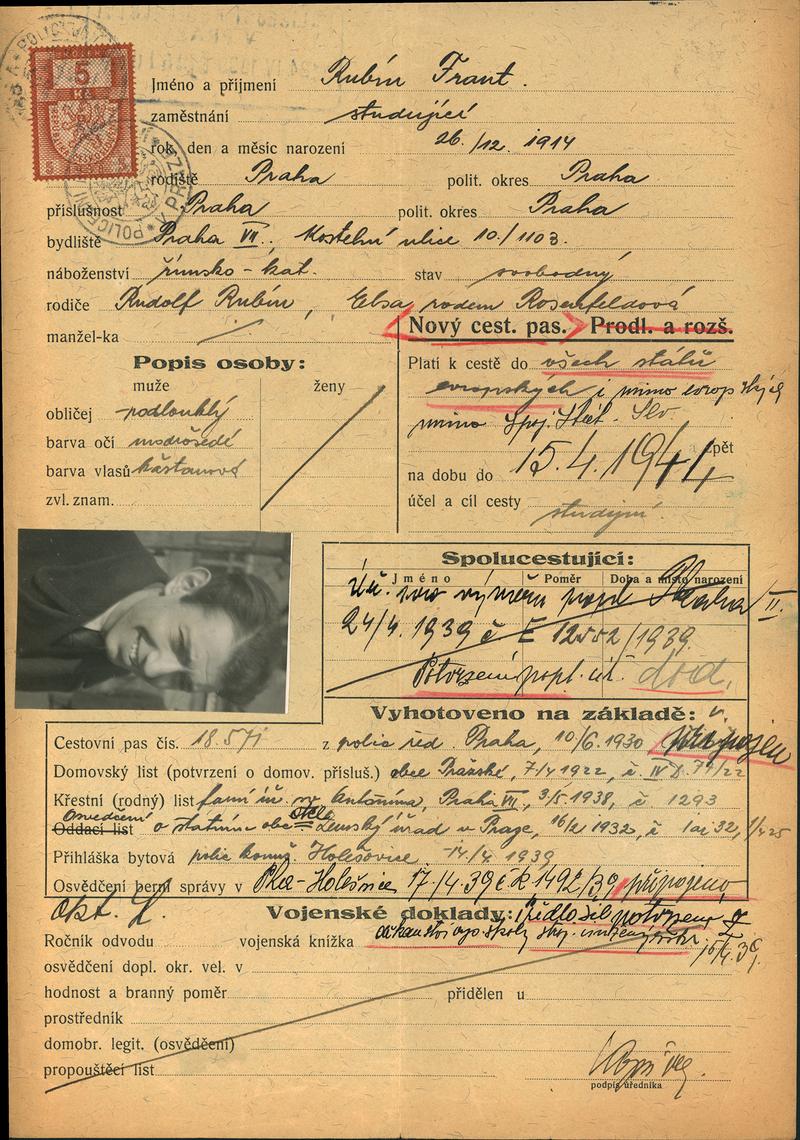 5
Kč
Jméno a příjmení Rubín Frant.
zaměstnání studující
rok, den a měsíc narození 26./12. 1914
rodiště Praha polit. okres Praha
příslušnost Praha polit. okres Praha
bydliště Praha VII., Kostelní ulice 10./1103.
náboženství římsko-kat. stav svobodný
rodiče Rudolf Rubín, Elsa rodem Rosenfeldová
manžel-ka
Nový cest. pas. Prodl. a rozš.
Popis osoby:
muže ženy
obličej podlouhlý
barva očí modrošedé
barva vlasů kaštanové
zvl. znam.
Platí k cestě do všech států
evropských i mimo evropských
mimo Spoj. Stát. Sev.
a zpět
na dobu do 15.4.1944
účel a cíl cesty studijní.
Spolucestující:
Jméno Poměr Doba a místo narození
Úř. výměru popl. Praha II.
24/4. 1939 č E 12552/1939
Potvrzení popl. úř. dod.
Vyhotoveno na základě:
Cestovní pas čís. 18.571 z polic. řed. Praha, 10/6. 1930 připojen
Domovský list (potvrzení o domov. přísluš.) obce Pražské, 7/4 1922, č. IV
Křestní (rodný) list farní úř. sv. Antonína, Praha VII, 3/5. 1938, č. 1293
Osvědčení
Oddací list o státním obč. Zemský úřad v Praze, 16/2 1932, č 1ai 32,
Přihláška bytová polic. komis. Holešovice 14/4 1939
Osvědčení berní správy v Pha-Holešovice 17/4.39 č.k 1492/39 připojeno
Vojenské doklady: předložil potvrzení
Ročník odvodu vojenská knížka
osvědčení dopl. okr. vel. v
hodnost a branný poměr přidělen u
prostředník
domobr. legit. (osvědčení)
propouštěcí list
podpis úředníka